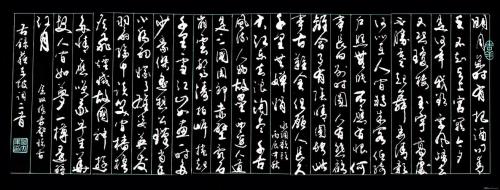 明月几时有把酒问青
天不知天上宫阙今夕
是何年我欲乘风归去
又恐琼楼玉宇高处
不胜寒起舞弄清影
何似在人间转朱阁低绮
户照无眠不应有恨何
事长向别时圆人有悲欢
离合月有阴晴圆缺此
事古难全但愿人长久
千里共婵娟
水调歌头
丙辰中秋
大江东去浪淘尽千古
风流人物故垒西边人道
是三国周郎赤壁乱石
崩云惊涛拍岸卷起
千堆雪江山如画一时多
少豪杰遥想公瑾当年
小乔初嫁了雄姿英发
羽扇纶巾谈笑间樯橹
灰飞烟灭故国神游
多情应笑我早生华
发人间如梦一樽还酹
江月
念奴娇赤壁怀古